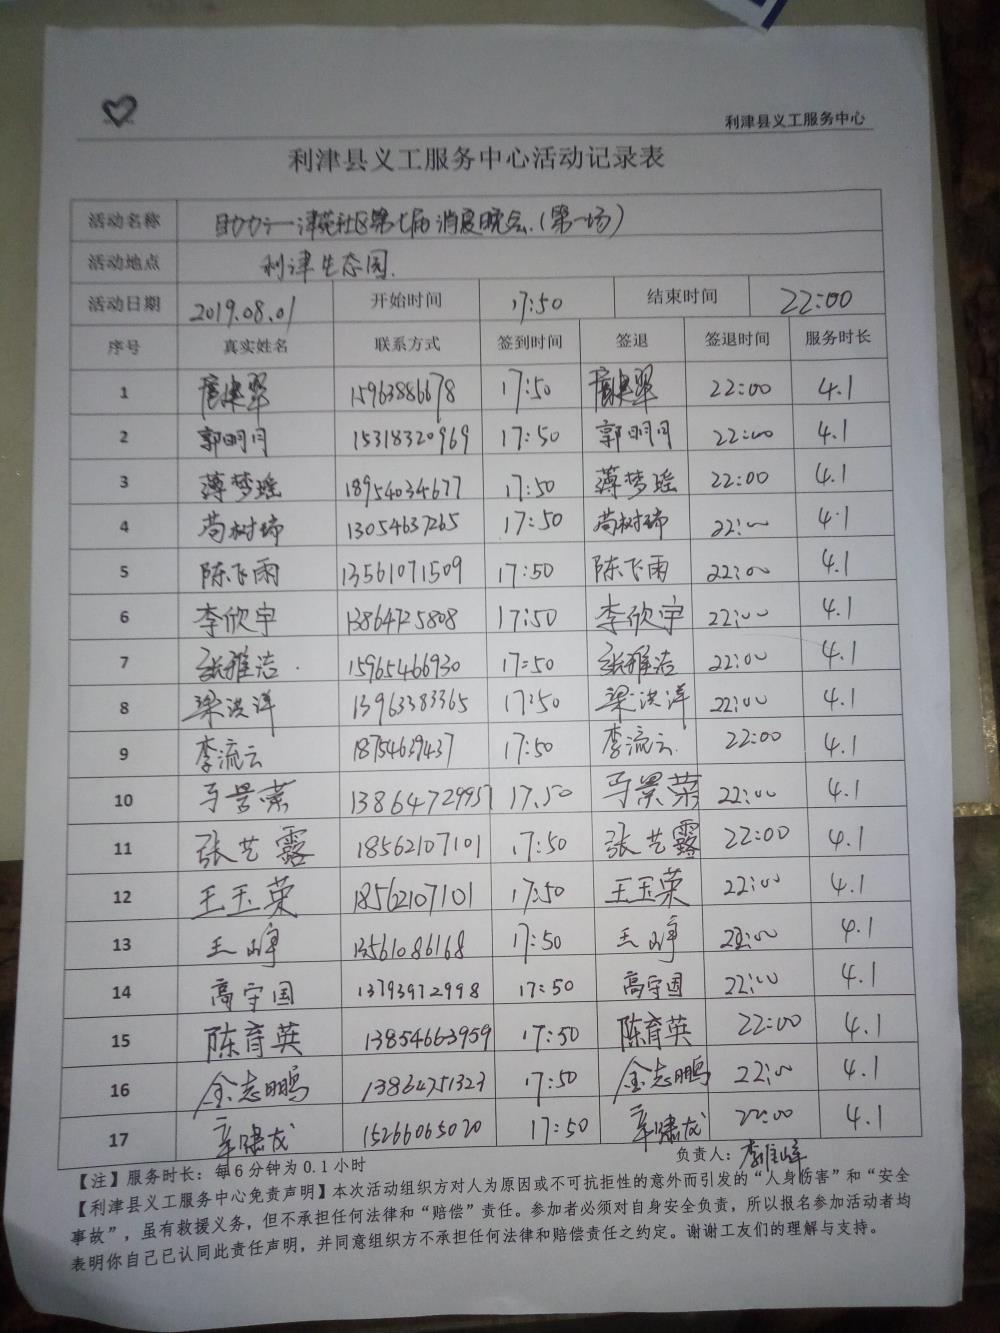 利津县义工服务中心
利津县义工服务中心活动记录表
活动名称 助力——津苑社区第七届消夏晚会.(第一场)
活动地点 利津生态园.
活动日期 2019.08.01 开始时间 17:50 结束时间 22:00
序号 真实姓名 联系方式 签到时间 签退 签退时间 服务时长
1 15963886678 17:50 22:00 4.1
2 郭明月 15318320969 17:50 郭明月 22:00 4.1
3 薄梦瑶 18954034677 17:50 薄梦瑶 22:00 4.1
4 苟树瑞 13054637265 17:50 苟树瑞 22:00 4.1
5 陈飞雨 13561071509 17:50 陈飞雨 22:00 4.1
6 李欣宇 13864725808 17:50 李欣宇 22:00 4.1
7 张雅洁. 15965466930 17:50 张雅洁 22:00 4.1
8 梁洪洋 13963383365 17:50 梁洪洋 22:00 4.1
9 李流云 18754639437 17:50 李流云. 22:00 4.1
10 马景荣 13864729957 17.50 马景荣 22:00 4.1
11 张艺露 18562107101 17:50 张艺露 22:00 4.1
12 王玉荣 18562107101 17:50 王玉荣 22:00 4.1
13 王峰 13561086168 17:50 王峰 22:00 4.1
14 高守国 13793972998 17:50 高守国 22:00 4.1
15 陈育英 13854663959 17:50 陈育英 22:00 4.1
16 金志鹏 13864751323 17:50 金志鹏 22:00 4.1
17 辛啸龙 15266065020 17:50 辛啸龙 22:00 4.1
【注】服务时长：每6分钟为0.1小时 负责人：李维峰
【利津县义工服务中心免责声明】本次活动组织方对人为原因或不可抗拒性的意外而引发的“人身伤害”和“安全
事故”，虽有救援义务，但不承担任何法律和“赔偿”责任。参加者必须对自身安全负责，所以报名参加活动者均
表明你自己已认同此责任声明，并同意组织方不承担任何法律和赔偿责任之约定。谢谢工友们的理解与支持。